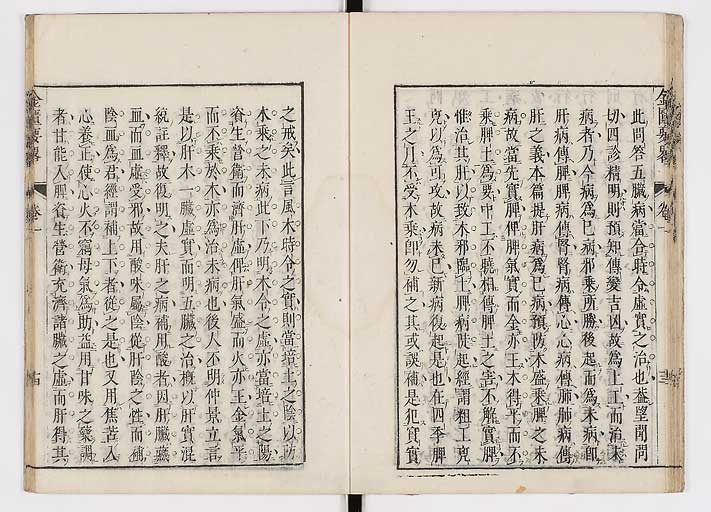 此問答五臟病當合時令虛實之治也蓋望聞問
切四診精明則預知傳變吉凶故為上工而治未
病者乃今病為已病邪乘所勝後起而為未病卽
肝病傳脾脾病傳腎腎病傳心心病傳肺肺病傳
肝之義本篇提肝病為已病預防木盛乘脾之未
病故當先實脾俾脾氣實而金亦王本得平而不
乘脾土為要中工不曉相傳脾土之害不解實脾
惟治其肝以致木邪臨土脾病陡起經謂粗工兇
兇以為可攻故病未已新病復起是也在四季脾
王之月不受木乘卽勿補之其或誤補是犯實實
之戒矣此言風木時令之實則當培土之陰以防
木乘之未病此下乃明木令之虛亦當培土之陽
資生營衛而濟肝虛俾肝氣盛而火亦王金氣平
而不乘於木亦為治未病也後人不明仲景立言
是以肝木一臟虛實而明五臟之治概以肝實混
統註釋故復明之夫肝之病補用酸者因肝臟藏
血而血虛受邪故用酸味屬陰從肝陰之性而補
陰血為君經謂補上下者從之是也又用焦苦入
心養正使心火不竊母氣為助益用甘味之藥調
者甘能入脾資生營衛充濟諸臟之虛而肝得其
金匱要畧
卷一
金匱要畧
卷一